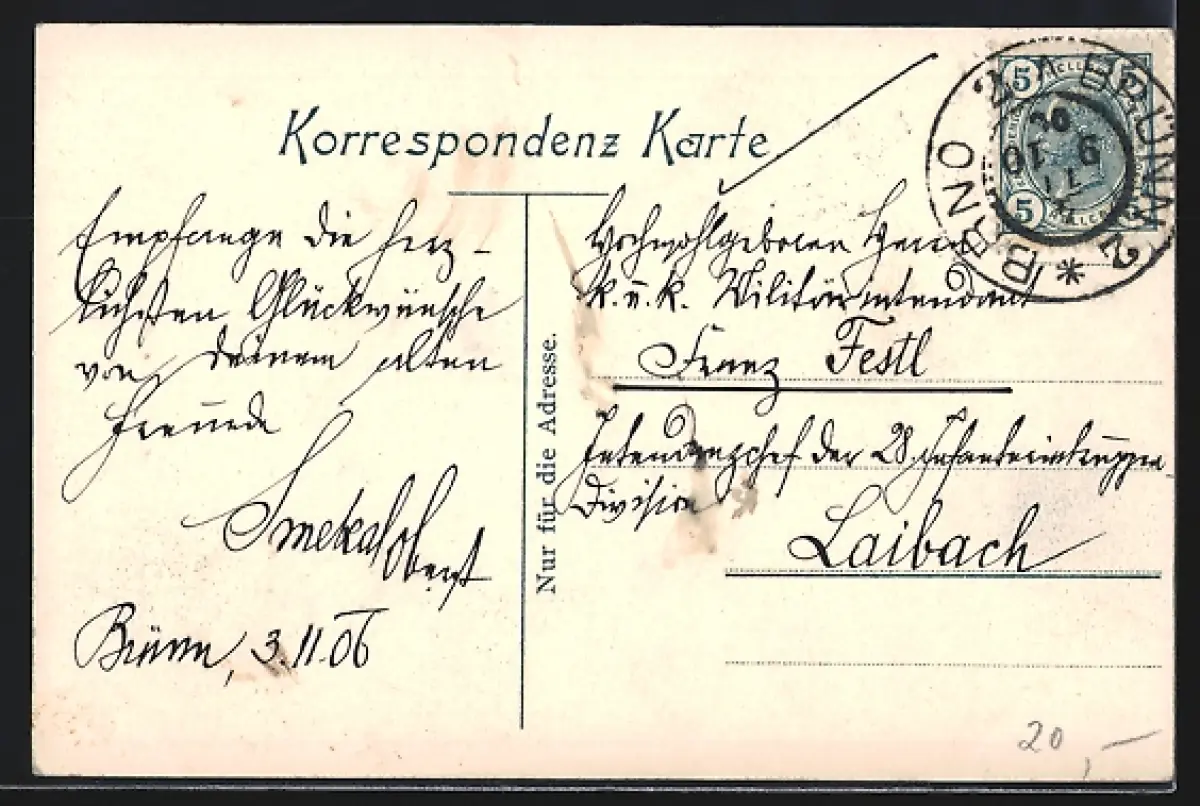 Korrespondenz Karte
Empfange die herz-
lichsten Glückwünsche
von Deinem alten
Freunde
Smekal Oberst
Brünn, 3.11.06
Nur für die Adresse.
Hochwohlgeboren Herrn
k. u. k. Militärintendant
Franz Festl
Intendanzchef der 28. Infanterietruppen-
division
Laibach
5 HELLER 5
5 HELLER
BRNO 2 BRÜNN 2 *
20,—